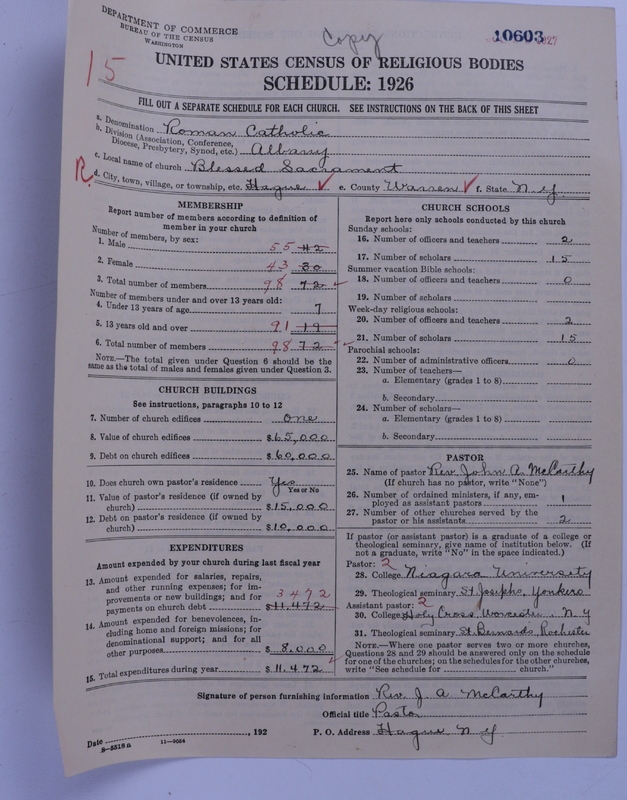 DEPARTMENT OF COMMERCE
BUREAU OF THE CENSUS
WASHINGTON
Copy
10603
15
UNITED STATES CENSUS OF RELIGIOUS BODIES
SCHEDULE: 1926
FILL OUT A SEPARATE SCHEDULE FOR EACH CHURCH. SEE INSTRUCTIONS ON THE BACK OF THIS SHEET
a. Denomination Roman Catholic
b. Division (Association, Conference, Diocese, Presbytery, Synod, etc.) Albany
c. Local name of church Blessed Sacrament
R d. City, town, village, or township, etc. Hague ✓ e. County Warren ✓ f. State N.Y.
MEMBERSHIP
Report number of members according to definition of
member in your church
Number of members, by sex:
1. Male 55 42
2. Female 43 30
3. Total number of members 98 72
Number of members under and over 13 years old:
4. Under 13 years of age 7
5. 13 years old and over 91 19
6. Total number of members 98 72
NOTE.—The total given under Question 6 should be the
same as the total of males and females given under Question 3.
CHURCH BUILDINGS
See instructions, paragraphs 10 to 12
7. Number of church edifices one
8. Value of church edifices $65,000
9. Debt on church edifices $60,000
10. Does church own pastor's residence Yes
Yes or No
11. Value of pastor's residence (if owned by
church) $15,000
12. Debt on pastor's residence (if owned by
church) $10,000
EXPENDITURES
Amount expended by your church during last fiscal year
13. Amount expended for salaries, repairs,
and other running expenses; for im-
provements or new buildings; and for
payments on church debt 3472 $11,472
14. Amount expended for benevolences, in-
cluding home and foreign missions; for
denominational support; and for all
other purposes $8,000
15. Total expenditures during year $11,472
CHURCH SCHOOLS
Report here only schools conducted by this church
Sunday schools:
16. Number of officers and teachers 2
17. Number of scholars 15
Summer vacation Bible schools:
18. Number of officers and teachers 0
19. Number of scholars
Week-day religious schools:
20. Number of officers and teachers 2
21. Number of scholars 15
Parochial schools:
22. Number of administrative officers 0
23. Number of teachers—
a. Elementary (grades 1 to 8)
b. Secondary
24. Number of scholars—
a. Elementary (grades 1 to 8)
b. Secondary
PASTOR
25. Name of pastor Rev. John A. McCarthy
(If church has no pastor, write "None")
26. Number of ordained ministers, if any, em-
ployed as assistant pastors 1
27. Number of other churches served by the
pastor or his assistants 2
If pastor (or assistant pastor) is a graduate of a college or
theological seminary, give name of institution below. (If
not a graduate, write "No" in the space indicated.)
Pastor: 2
28. College Niagara University
29. Theological seminary St Josephs, Yonkers
Assistant pastor: 2
30. College Holy Cross, Worcester, N Y
31. Theological seminary St. Bernards, Rochester
NOTE.—Where one pastor serves two or more churches,
Questions 28 and 29 should be answered only on the schedule
for one of the churches; on the schedules for the other churches,
write "See schedule for ------ church."
Signature of person furnishing information Rev. J. A. McCarthy
Official title Pastor
Date ------, 192 P. O. Address Hague N.Y.
8-5518a 11-9664